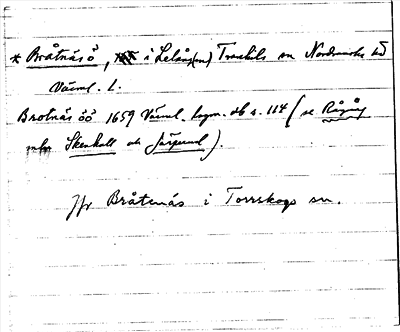 * Bråtnäsö, i Lelång(en) Trankils sn Nordmarks hd
Värml. l.
Brotnäs öö 1659 Värml. lagm. db s. 114 (se Rågrug
mfl Skenhall och Järpeud).
Jfr Bråtenäs i Torrskogs sn.